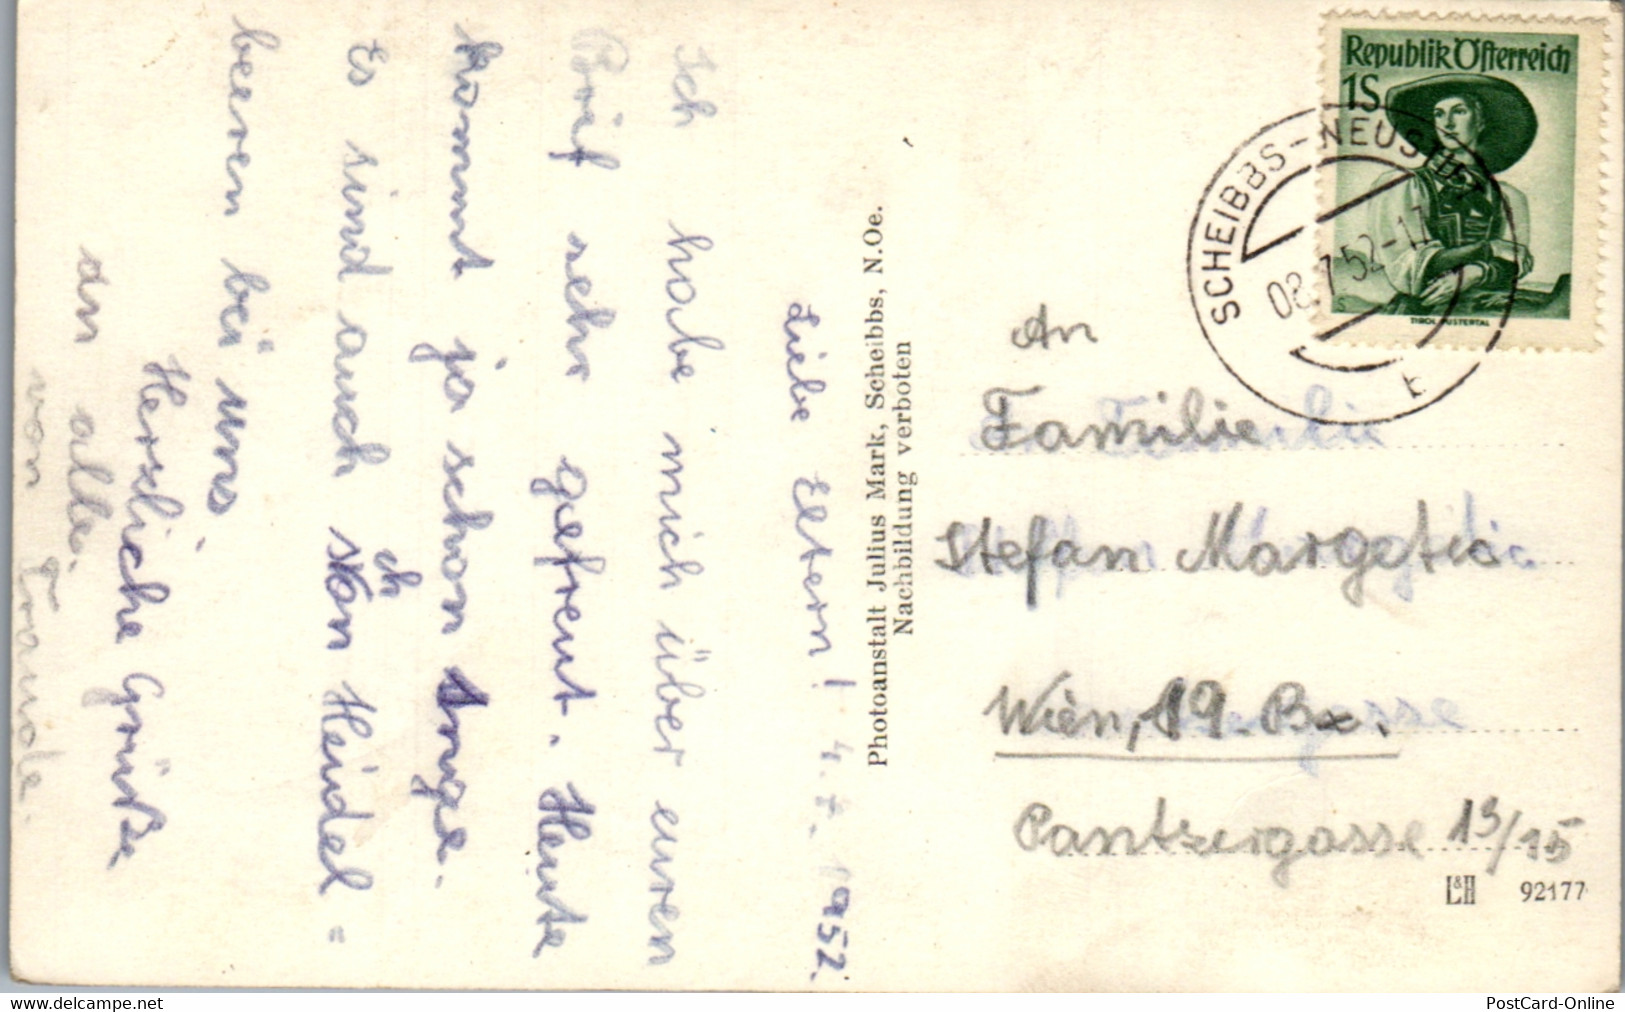 Liebe Eltern! 4.7.1952.
Ich habe mich über euren
Brief sehr gefreut. Heute
kommt ja schon Inge.
Es sind auch schon Heidel=
beeren bei uns.
Herzliche Grüße
an alle.
von Traude.
Photoanstalt Julius Mark, Scheibbs, N.Oe.
Nachbildung verboten
Republik Österreich
1S
TIROL, PUSTERTAL
SCHEIBBS-NEUSTIFT
08.7.52-17
b
An
Familie
Stefan Margetić
Wien, 19. Bz.
Pantzergasse 13/15
L&H 92177
www.delcampe.net
PostCard-Online